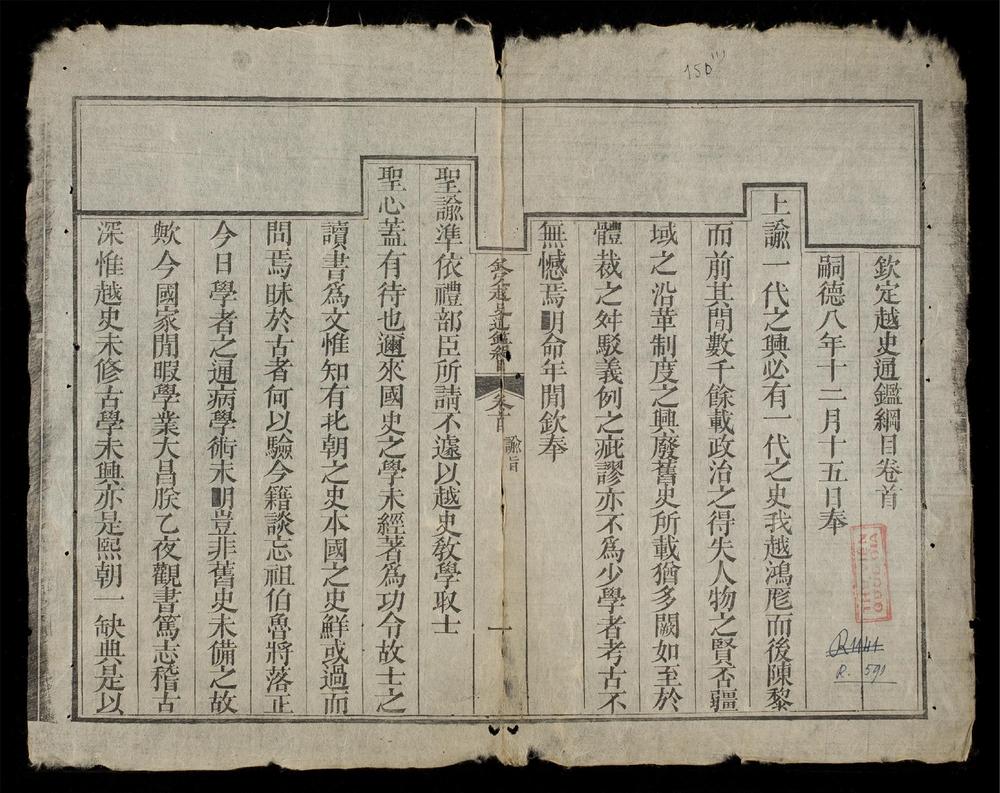 欽定越史通鑑綱目卷首
嗣德八年十二月十五日奉
上諭一代之興必有一代之史我越鴻厖而後陳黎
而前其間數千餘載政治之得失人物之賢否疆
域之沿革制度之興廢舊史所載猶多闕如至於
體裁之舛駁義例之疵謬亦不爲少學者考古不
無憾焉明命年間欽奉
欽定越史通鑑綱目 卷首 諭旨 一
聖諭準依禮部臣所請不遽以越史敎學取士
聖心蓋有待也邇來國史之學未經著爲功令故士之
讀書爲文惟知有北朝之史本國之史鮮或過而
問焉昧於古者何以驗今籍談忘祖伯魯將落正
今日學者之通病學術未明豈非舊史未備之故
歟今國家閒暇學業大昌朕乙夜觀書篤志稽古
深惟越史未修古學未興亦是熙朝一缺典是以
150
THƯ VIỆN
QUỐC GIA
R. 591